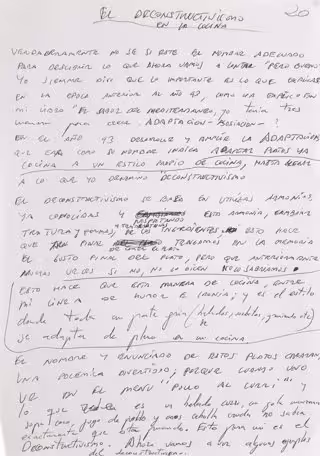 EL DECONSTRUCTIVISMO
EN LA COCINA
20
VERDADERAMENTE NO SE SI ESTE EL NOMBRE ADECUADO
PARA DESCRIBIR LO QUE AHORA VAMOS A CONTAR "PERO BUENO"
YO SIEMPRE DIGO QUE LO IMPORTANTE ES LO QUE EXPLICAS
EN LA EPOCA ANTERIOR AL AÑO 93, COMO YA EXPLICO EN
MI LIBRO "EL SABOR DEL MEDITERRANEO", YO TENIA TRES
PARA CREAR ADAPTACION - ASOCIACION - ?
EN EL AÑO 93 Y AMPLIE LA ADAPTACION
QUE ERA COMO SU NOMBRE INDICA ADAPTAR PLATOS YA
COCINA A UN ESTILO PROPIO DE COCINA, HASTA LLEGAR
A LO QUE YO DENOMINO "DECONSTRUCTIVISMO"
EL DECONSTRUCTIVISMO SE BASA EN UTILIZAR ARMONIAS,
YA CONOCIDAS Y RESPETANDO ESTA ARMONIA, CAMBIAR
TEXTURA Y FORMAS, DE LOS INGREDIENTES ESTO HACE
QUE FINAL TENGAMOS EN LA MEMORIA
EL GUSTO FINAL DEL PLATO, PERO QUE ANTERIORMENTE
MUCHAS VECES SI NO, NO LO DICEN NO LO SABRIAMOS.
ESTO HACE QUE ESTA MANERA DE COCINA, ENTRE
MI LINEA DE HUMOR E IRONIA; y es el estilo
donde toda mi parte fria (helados, gelatinas, granizados, etc
se adapta de pleno en mi cocina
EL NOMBRE Y ENUNCIADO DE ESTOS PLATOS CREARAN,
UNA POLEMICA DIVERTIDO; PORQUE CUANDO UNO
VE EN EL MENU "POLLO AL CURRI" Y
lo que es un helado curri, en gele
sopa coco, jugo de pollo y aros cebolla cruda no sabra
exactamente que esta comiendo. Esto para mi es el
Deconstructivismo. Ahora vamos a ver algunos ejemplos
del deconstructivismo.